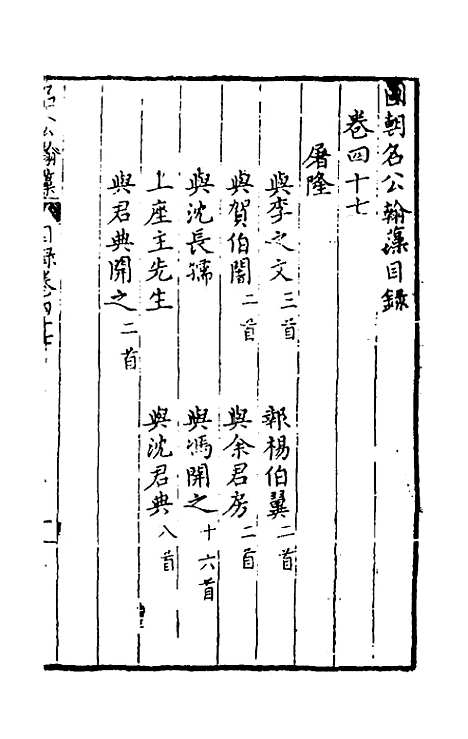 國朝名公翰藻目錄
卷四十七
屠隆
與李之文三首
報楊伯翼二首
與賀伯闇二首
與余君房二首
與沈長孺
與馮開之十六首
上座主先生
與沈君典八首
與君典開之二首
名公翰藻
目錄卷四十七
一